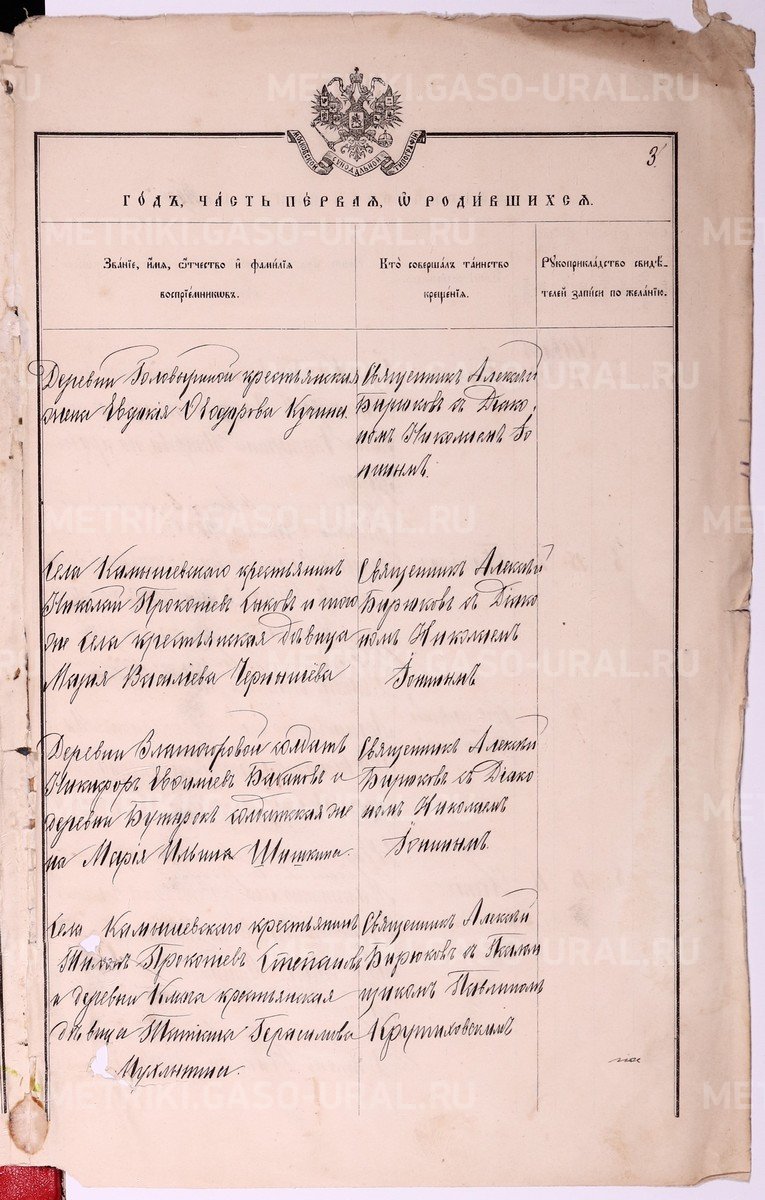 METRIKI.GASO-URAL.RU
МОСКОВСКОЙ СѴНОДАЛЬНОЙ ТИПОГРАФІИ
3
ГО́ДЪ, ЧА́СТЬ ПЕ́РВАЯ, Ѿ РОДИ́ВШИХСЯ.
Зва́нїе, и҆́мѧ, ѻ҆́тчество и҆ фамі́лїѧ
воспрїе́мникѡвъ.
Кто̀ соверша́лъ та́инство
креще́нїѧ.
Рꙋкоприкла́дство свидѣ́-
телей за́писи по жела́нїю.
Деревни Головыриной крестьянская
жена Евдокія Ѳеодорова Кучина.
Священникъ Алексѣй
Бирюковъ съ Діако-
номъ Николаемъ
Села Камышевскаго крестьянинъ
Николай Прокопіевъ и того
же села крестьянская дѣвица
Марія Василіева Чернышева
Священникъ Алексѣй
Бирюковъ съ Діако
номъ Николаемъ
Деревни солдатъ
Никифоръ Евѳиміевъ Бабиновъ и
деревни солдатская же
на Марія Ильина Шишкина.
Священникъ Алексѣй
Бирюковъ съ Діако
номъ Николаемъ
Села Камышевскаго крестьянинъ
Прокопіевъ Степановъ
и деревни крестьянская
дѣвица Татіана Герасимова
Мухлынина.
Священникъ Алексѣй
Бирюковъ съ Псалом
щикомъ Павлиномъ
Крутиховскимъ